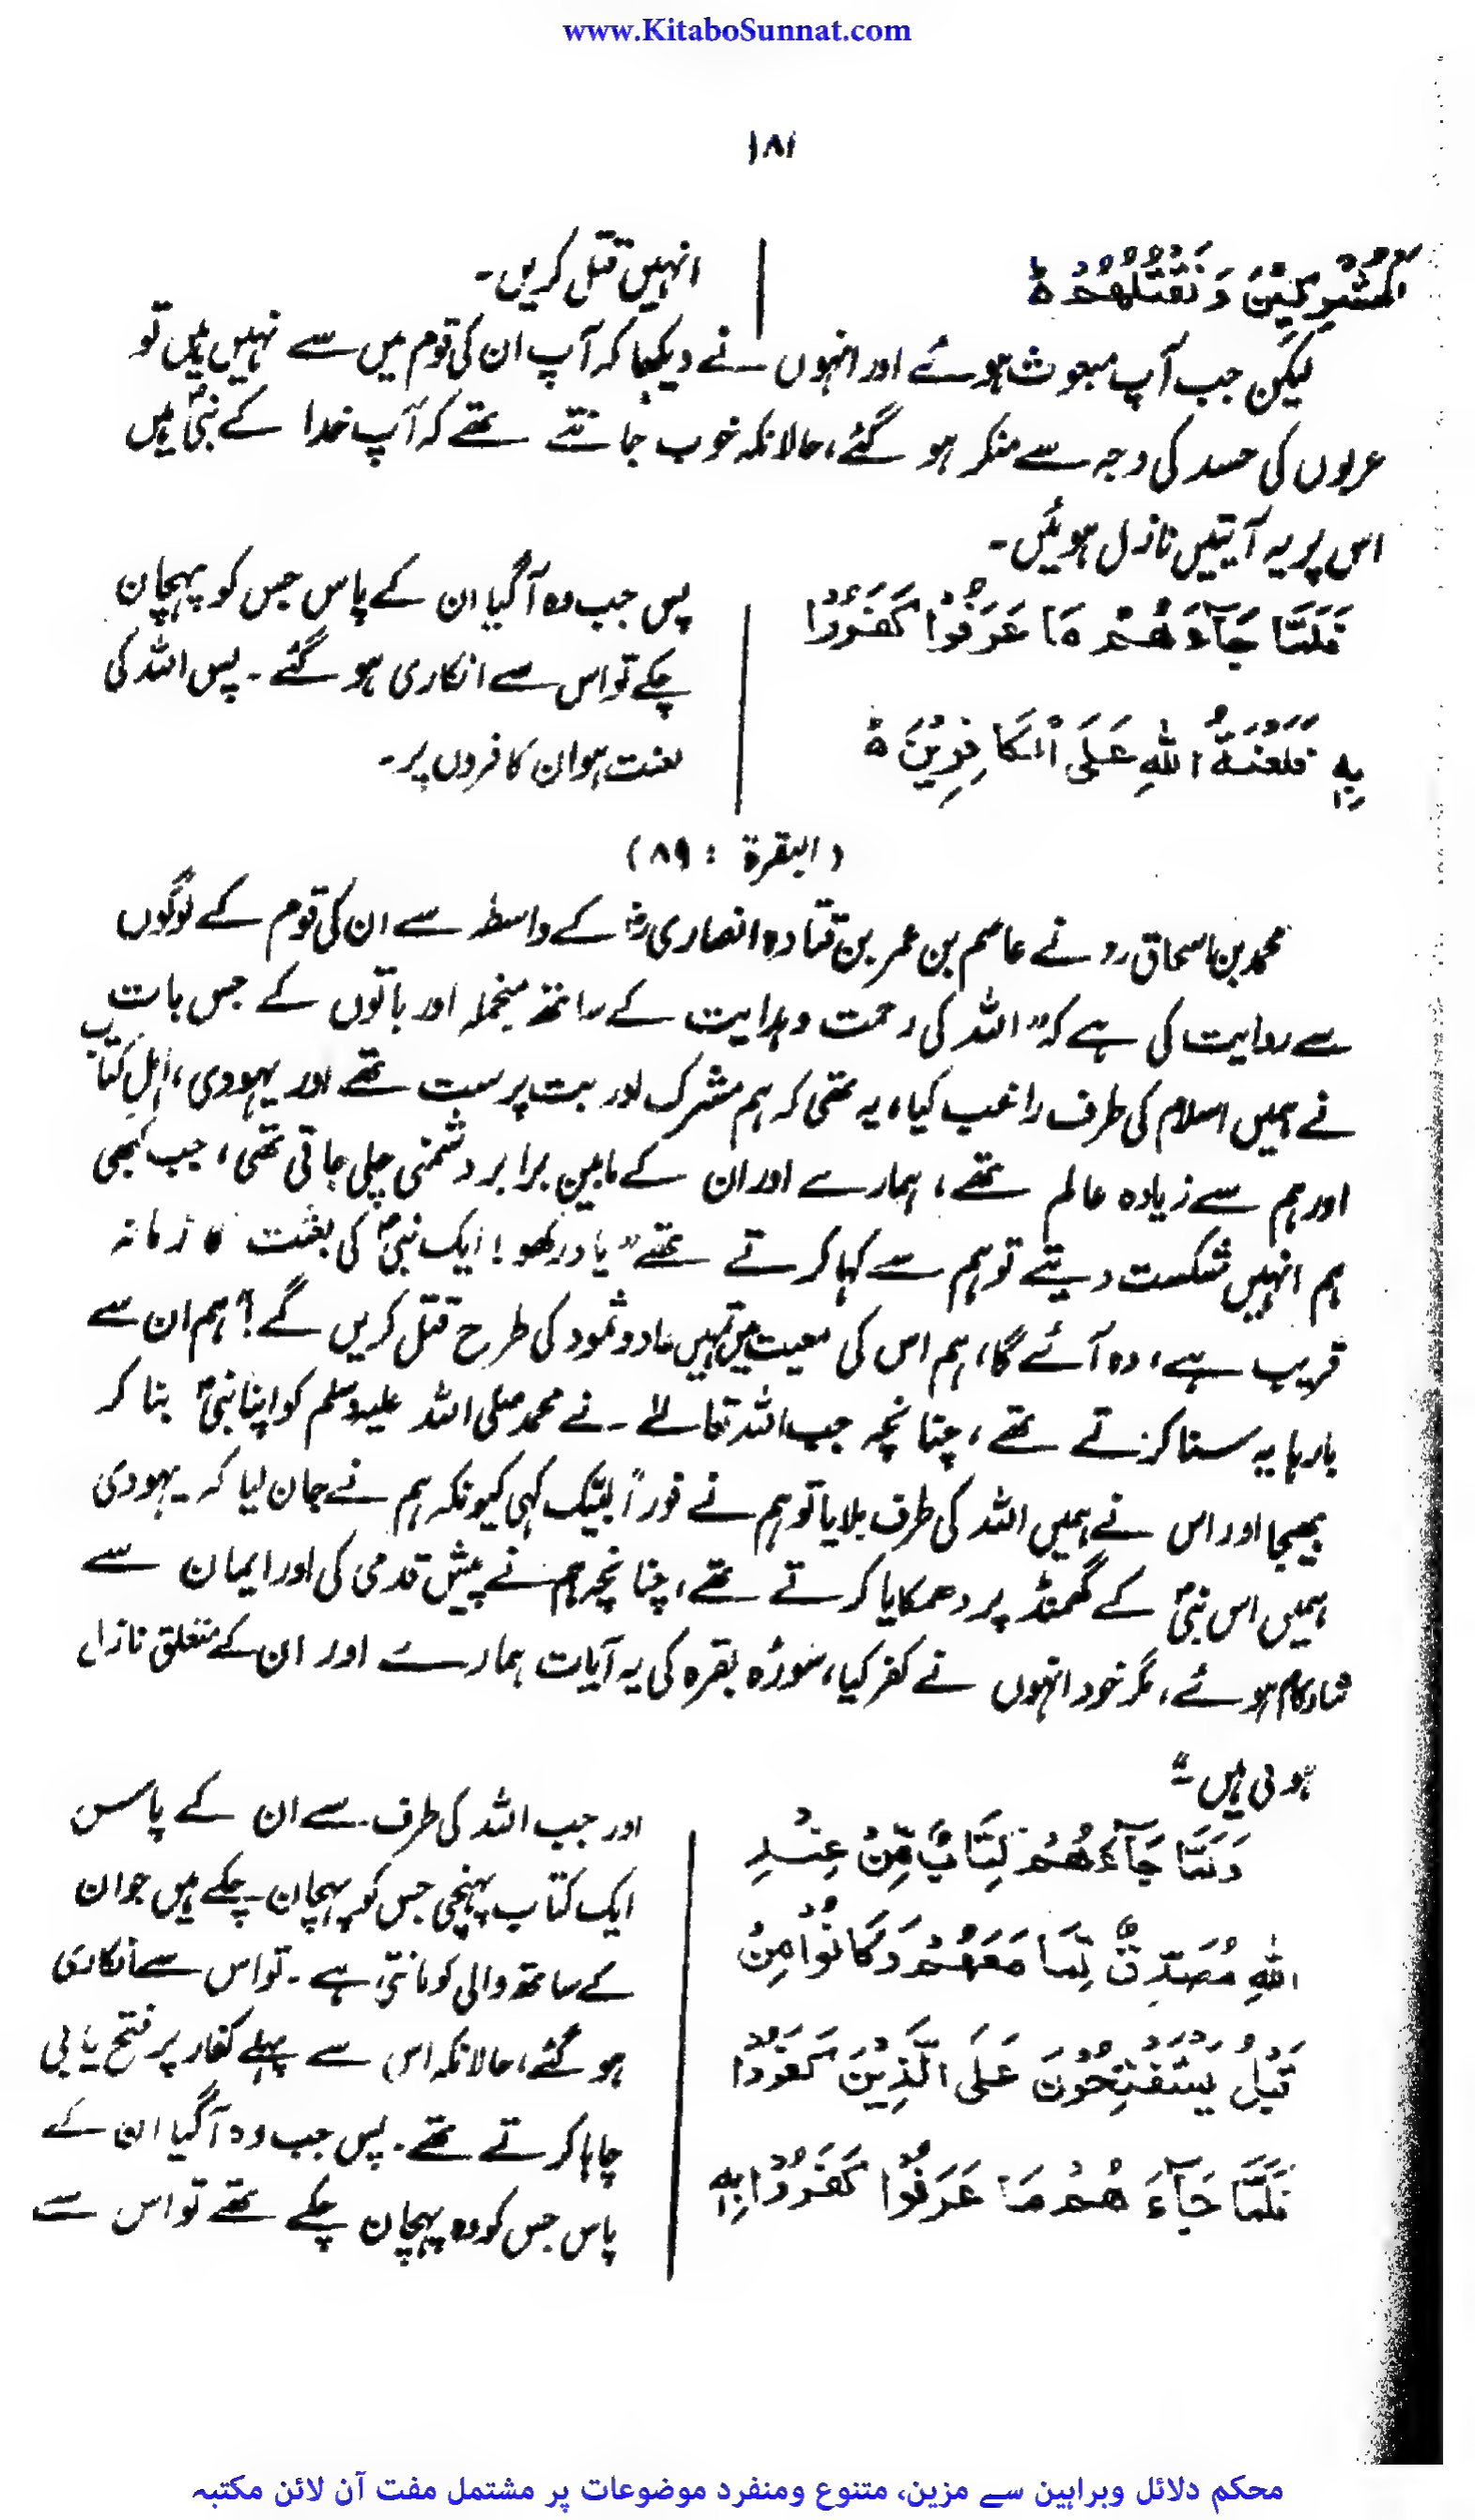 www.KitaboSunnat.com
۱۸۱
الْمُشْرِكِيْنَ وَنَقْتُلَهُمْ ط
انہیں قتل کریں۔
لیکن جب آپ مبعوث ہوئے اور انہوں نے دیکھا کہ آپ ان کی قوم میں سے نہیں ہیں تو
عربوں کی حسد کی وجہ سے منکر ہو گئے، حالانکہ خوب جانتے تھے کہ آپ خدا کے نبیؐ ہیں
اس پر یہ آیتیں نازل ہوئیں۔
فَلَمَّا جَآءَهُمْ مَا عَرَفُوْا كَفَرُوْا
بِهٖ فَلَعْنَةُ اللّٰهِ عَلَى الْكَافِرِيْنَ ط
پس جب وہ آگیا ان کے پاس جس کو پہچان
چکے تو اس سے انکاری ہو گئے۔ پس اللہ کی
لعنت ہو ان کافروں پر۔
(البقرۃ : ۸۹)
محمد بن اسحاق رح نے عاصم بن عمر بن قتادہ انصاری رض کے واسطہ سے ان کی قوم کے لوگوں
سے روایت کی ہے کہ "اللہ کی رحمت و ہدایت کے ساتھ منجملہ اور باتوں کے جس بات
نے ہمیں اسلام کی طرف راغب کیا، یہ تھی کہ ہم مشرک اور بت پرست تھے اور یہودی، اہلِ کتاب
اور ہم سے زیادہ عالم تھے، ہمارے اور ان کے مابین برابر دشمنی چلی جاتی تھی، جب کبھی
ہم انہیں شکست دیتے تو ہم سے کہا کرتے تھے "یاد رکھو! ایک نبیؐ کی بعثت کا زمانہ
قریب ہے، وہ آئے گا، ہم اس کی معیت میں تمہیں عاد و ثمود کی طرح قتل کریں گے" ہم ان سے
بارہا یہ سنا کرتے تھے، چنانچہ جب اللہ تعالیٰ نے محمد صلی اللہ علیہ وسلم کو اپنا نبیؐ بنا کر
بھیجا اور اس نے ہمیں اللہ کی طرف بلایا تو ہم نے فوراً لبیک کہی کیونکہ ہم نے جان لیا کہ یہودی
ہمیں اس نبیؐ کے گھمنڈ پر دھمکایا کرتے تھے، چنانچہ ہم نے پیش قدمی کی اور ایمان سے
شادکام ہوئے، مگر خود انہوں نے کفر کیا، سورۂ بقرہ کی یہ آیات ہمارے اور ان کے متعلق نازل
ہوئی ہیں۔"
وَلَمَّا جَآءَهُمْ كِتَابٌ مِّنْ عِنْدِ
اللّٰهِ مُصَدِّقٌ لِّمَا مَعَهُمْ وَكَانُوْا مِنْ
قَبْلُ يَسْتَفْتِحُوْنَ عَلَى الَّذِيْنَ كَفَرُوْا
فَلَمَّا جَآءَهُمْ مَا عَرَفُوْا كَفَرُوْا بِهٖ
اور جب اللہ کی طرف سے ان کے پاس
ایک کتاب پہنچی جس کو پہچان چکے ہیں جو ان
کے ساتھ والی کو مانتی ہے۔ تو اس سے انکاری
ہو گئے، حالانکہ اس سے پہلے کفار پر فتح یابی
چاہا کرتے تھے۔ پس جب وہ آگیا ان کے
پاس جس کو وہ پہچان چکے تھے تو اس سے
محکم دلائل وبراہین سے مزین، متنوع ومنفرد موضوعات پر مشتمل مفت آن لائن مکتبہ